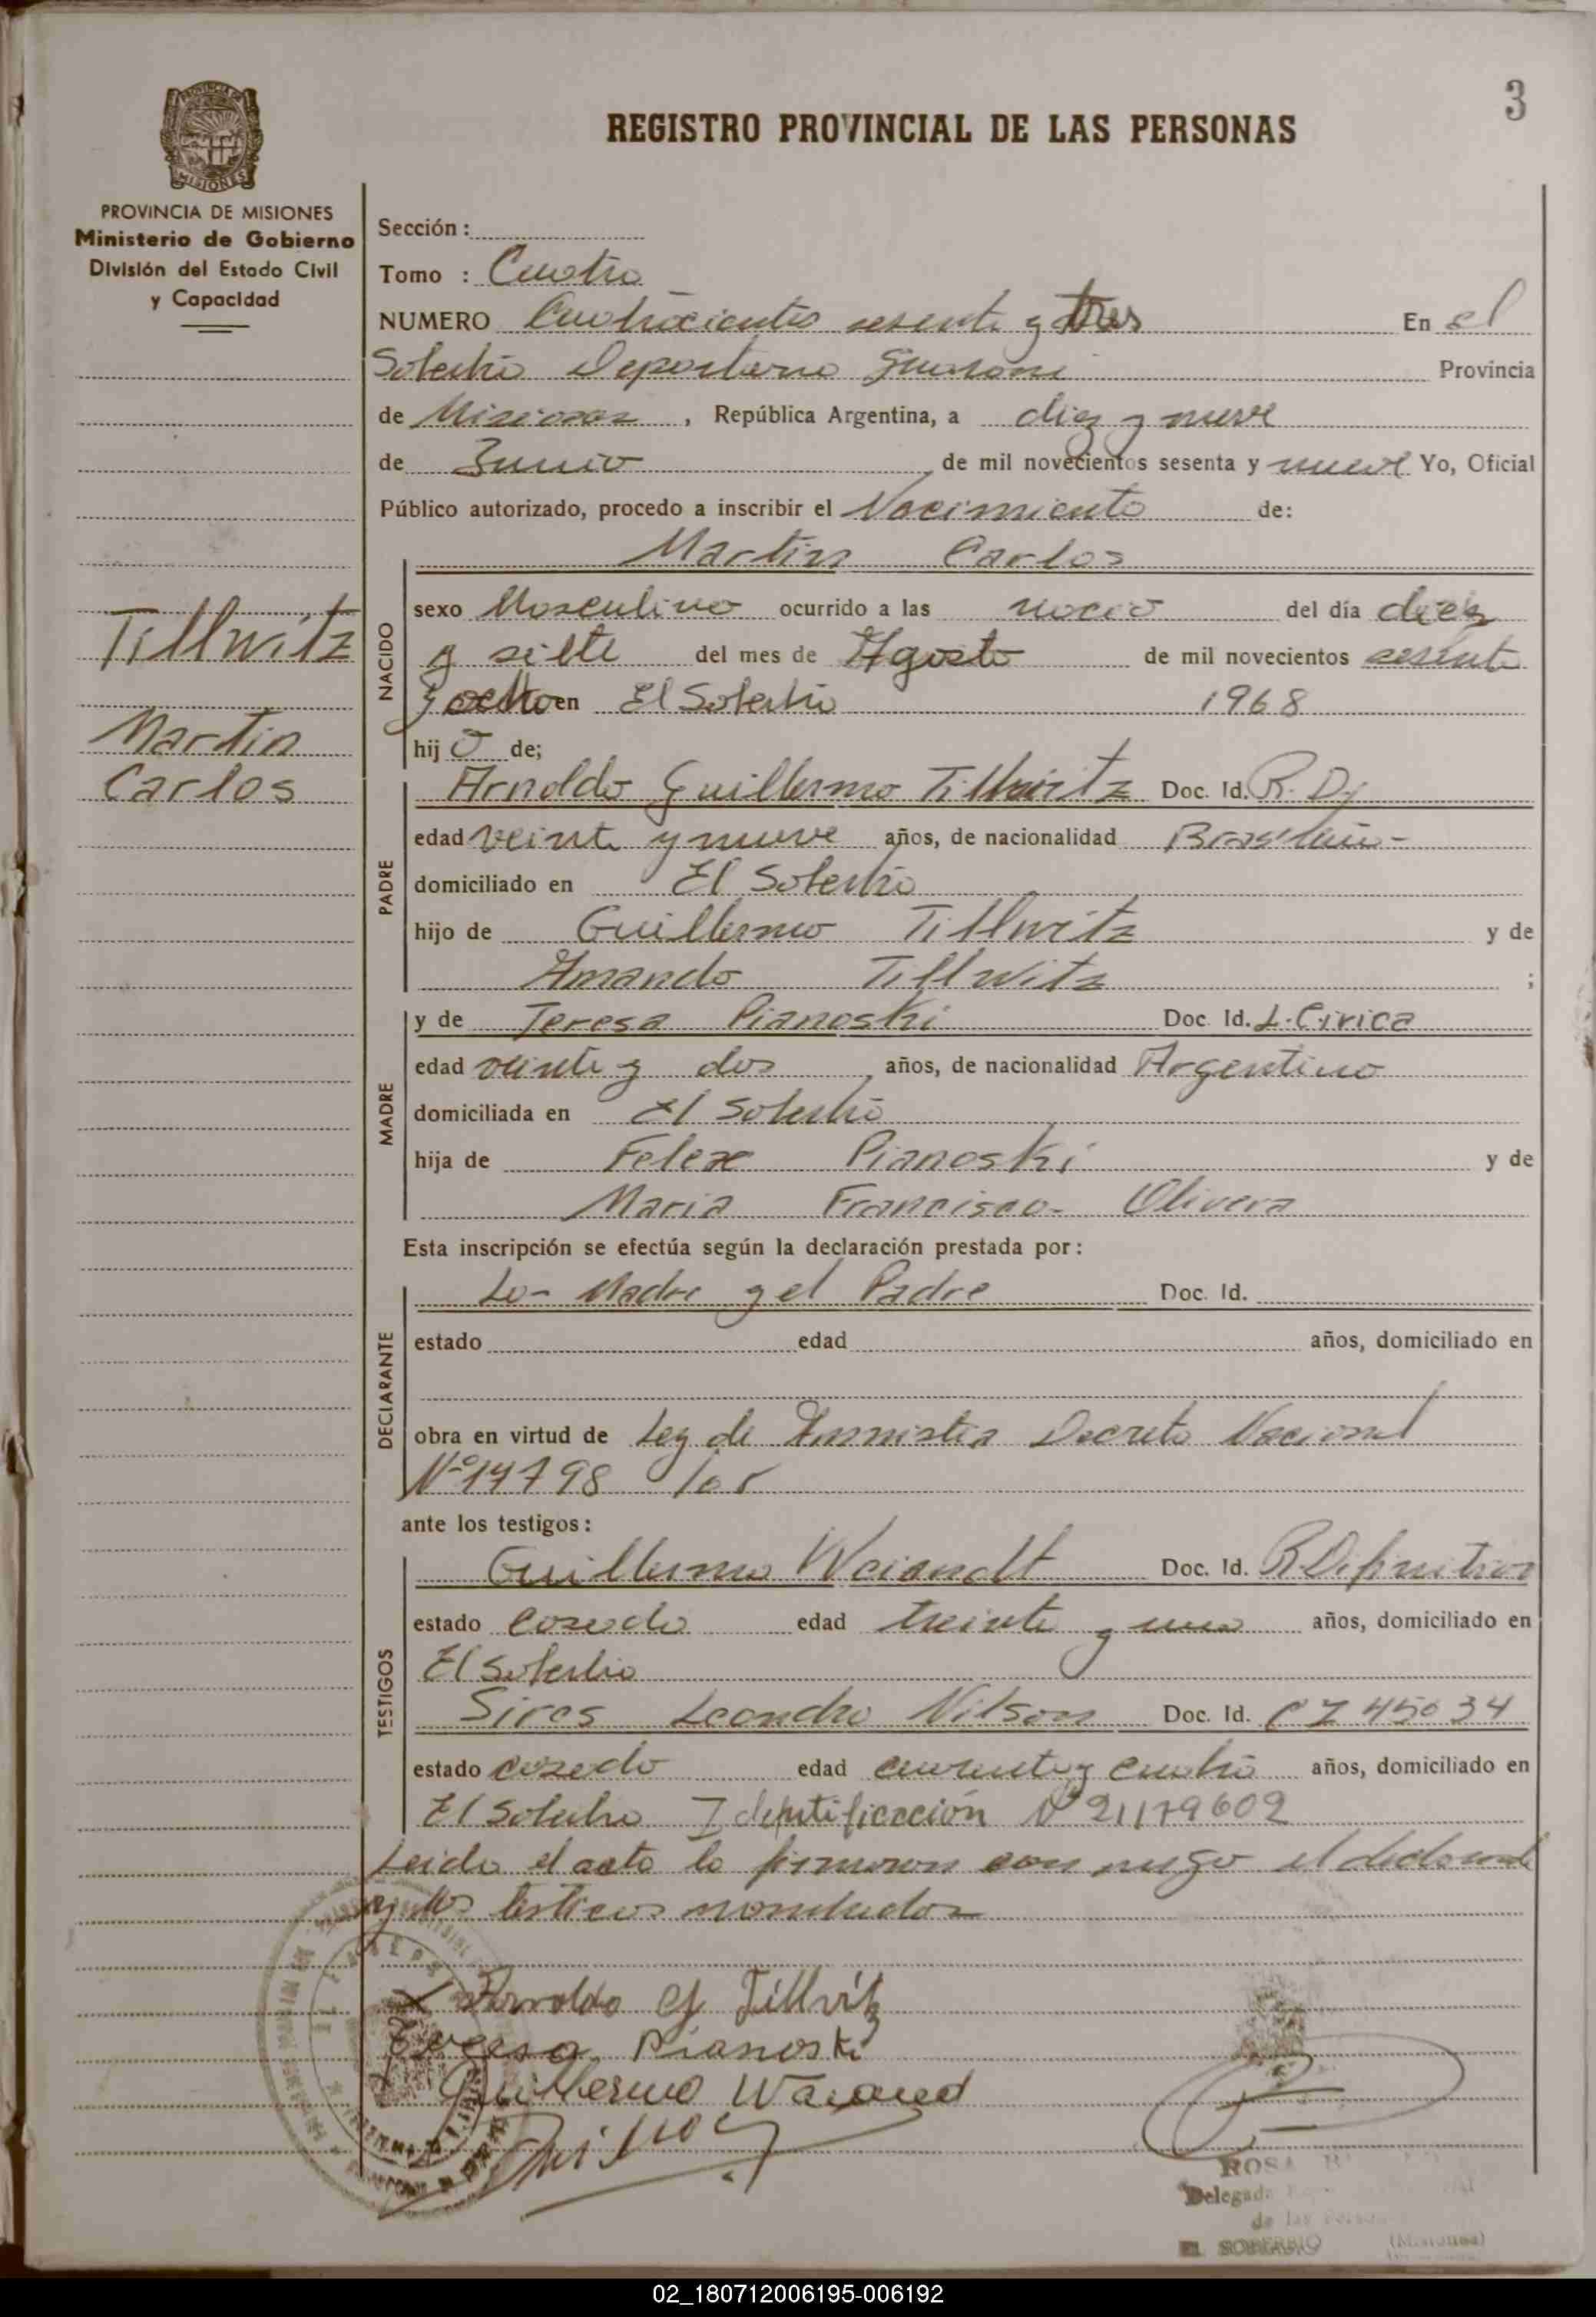 3
REGISTRO PROVINCIAL DE LAS PERSONAS
PROVINCIA DE MISIONES
Ministerio de Gobierno
División del Estado Civil
y Capacidad
Sección :
Tomo : Cuatro
NUMERO Cuatrocientos sesenta y tres En el
Soberbio Departamento Guarani Provincia
de Misiones, República Argentina, a diez y nueve
de Junio de mil novecientos sesenta y nueve Yo, Oficial
Público autorizado, procedo a inscribir el Nacimiento de:
Martin Carlos
Tillwitz
Martin
Carlos
NACIDO
sexo Masculino ocurrido a las del día diez
y siete del mes de Agosto de mil novecientos sesenta
y ocho en El Soberbio 1968
hijo de;
PADRE
Arnoldo Guillermo Tillwitz Doc. Id. R. D.
edad veinte y nueve años, de nacionalidad Brasileño-
domiciliado en El Soberbio
hijo de Guillermo Tillwitz y de
Amanda Tillwitz ;
MADRE
y de Teresa Pianoski Doc. Id. L. Civica
edad veinte y dos años, de nacionalidad Argentina
domiciliada en El Soberbio
hija de Felex Pianoski y de
Maria Francisca- Olivera
Esta inscripción se efectúa según la declaración prestada por:
DECLARANTE
La- Madre y el Padre Doc. Id.
estado edad años, domiciliado en
obra en virtud de Ley de Amnistia Decreto Nacional
Nº 14798
ante los testigos:
TESTIGOS
Guillermo Weiandt Doc. Id. R Difinitiva
estado Casado edad treinta y uno años, domiciliado en
El Soberbio
Sires Leandro Nilson Doc. Id. C I 45034
estado casado edad cuarenta y cuatro años, domiciliado en
El Soberbio Identificación Nº 21179602
Leida el acta la firmaron con migo el declarante
y los testigos nombrados
Arnoldo G. Tillvitz
Teresa Pianoski
Guillermo
ROSA
Delegada
de las Personas
EL SOBERBIO (Misiones)
02_180712006195-006192